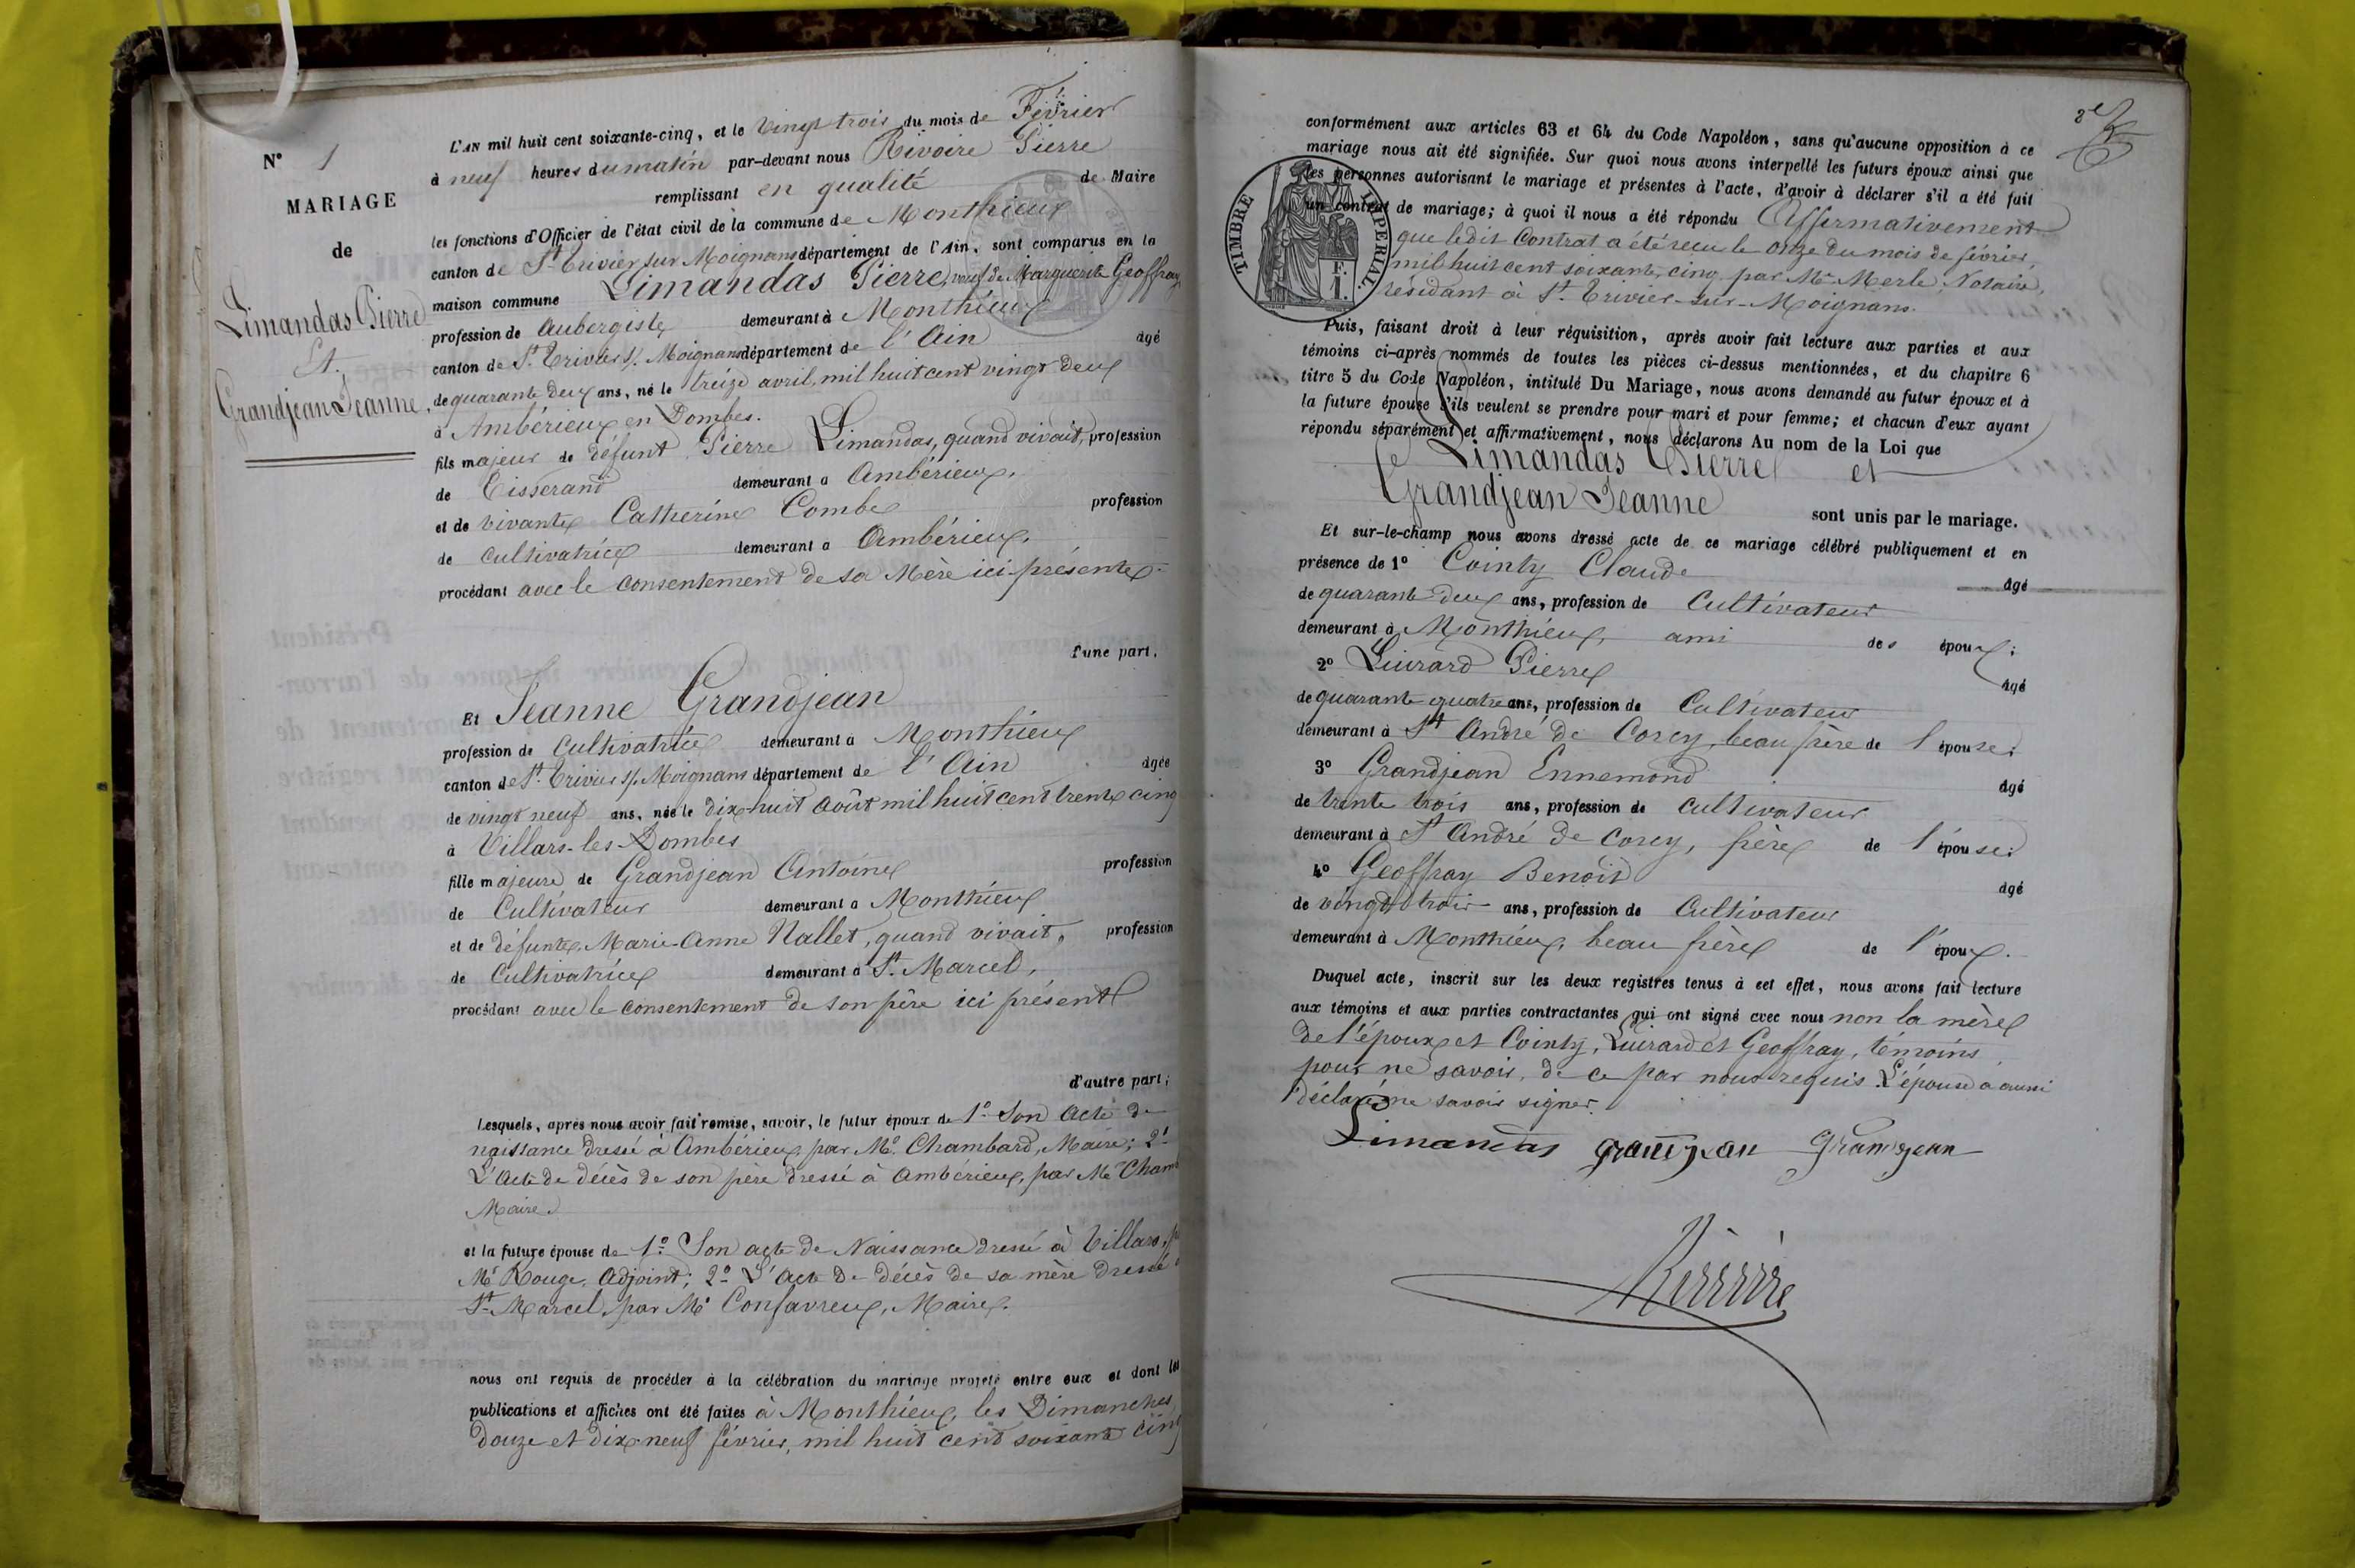 N° 1
MARIAGE
de
Limandas Pierre
Et
Grandjean Jeanne
L'AN mil huit cent soixante-cinq, et le vingt trois du mois de Février
à neuf heures du matin par-devant nous Rivoire Pierre
remplissant en qualité de Maire
les fonctions d'Officier de l'état civil de la commune de Monthieux
canton de St Trivier sur Moignans département de l'Ain, sont comparus en la
maison commune Limandas Pierre, veuf de Marguerite Geoffray
profession de Aubergiste demeurant à Monthieux
canton de St Trivier s/. Moignans département de l'Ain âgé
de quarante deux ans, né le treize avril, mil huit cent vingt deux
à Ambérieux en Dombes.
fils majeur de défunt Pierre Limandas, quand vivait, profession
de Tisserand demeurant à Ambérieux,
et de vivante Catherine Combe profession
de Cultivatrice demeurant à Ambérieux,
procédant avec le consentement de sa Mère ici présente
d'une part,
Et Jeanne Grandjean
profession de Cultivatrice demeurant à Monthieux
canton de St. Trivier s/. Moignans département de l'Ain âgée
de vingt neuf ans, née le dix huit Août mil huit cent trente cinq
à Villars-les-Dombes
fille majeure de Grandjean Antoine profession
de Cultivateur demeurant à Monthieux
et de défunte, Marie-Anne Nallet, quand vivait, profession
de Cultivatrice demeurant à St. Marcel,
procédant avec le consentement de son père ici présent
d'autre part;
Lesquels, après nous avoir fait remise, savoir, le futur époux de 1° Son Acte de
naissance dressé à Ambérieux par Mr. Chambard, Maire; 2°
L'Acte de décès de son père dressé à Ambérieux, par Mr Cham
Maire.
et la future épouse de 1° Son acte de Naissance dressé à Villars,
Mr Rouge, Adjoint; 2° L'Acte de décès de sa mère dressé
St. Marcel, par Mr Confavreux, Maire.
nous ont requis de procéder à la célébration du mariage projeté entre eux et dont les
publications et affiches ont été faites à Monthieux, les Dimanches
douze et dix-neuf février, mil huit cent soixante cinq
conformément aux articles 63 et 64 du Code Napoléon, sans qu'aucune opposition à ce
mariage nous ait été signifiée. Sur quoi nous avons interpellé les futurs époux ainsi que
les personnes autorisant le mariage et présentes à l'acte, d'avoir à déclarer s'il a été fait
un contrat de mariage; à quoi il nous a été répondu Affirmativement
que ledit Contrat a été reçu le onze du mois de février,
mil huit cent soixante, cinq, par Me Merle, Notaire,
résidant à St. Trivier-sur-Moignans.
TIMBRE IMPERIAL.
F.
1.
Puis, faisant droit à leur réquisition, après avoir fait lecture aux parties et aux
témoins ci-après nommés de toutes les pièces ci-dessus mentionnées, et du chapitre 6
titre 5 du Code Napoléon, intitulé Du Mariage, nous avons demandé au futur époux et à
la future épouse s'ils veulent se prendre pour mari et pour femme; et chacun d'eux ayant
répondu séparément et affirmativement, nous déclarons Au nom de la Loi que
Limandas Pierre et
Grandjean Jeanne sont unis par le mariage.
Et sur-le-champ nous avons dressé acte de ce mariage célébré publiquement et en
présence de 1° Cointy Claude âgé
de quarante deux ans, profession de Cultivateur
demeurant à Monthieux, ami des époux;
2° Luirard Pierre âgé
de quarante quatre ans, profession de Cultivateur
demeurant à St André de Corcy, beau frère de l'épouse;
3° Grandjean Ennemond âgé
de trente trois ans, profession de cultivateur
demeurant à St André de Corcy, frère de l'épouse;
4° Geoffray Benoit âgé
de vingt trois ans, profession de Cultivateur
demeurant à Monthieux, beau frère de l'époux.
Duquel acte, inscrit sur les deux registres tenus à cet effet, nous avons fait lecture
aux témoins et aux parties contractantes qui ont signé avec nous non la mère
de l'époux et Cointy, Luirard et Geoffray, témoins,
pour ne savoir, de ce par nous requis. L'épouse a aussi
déclaré ne savoir signer.
Limandas grandjean Grandjean
Rivoire